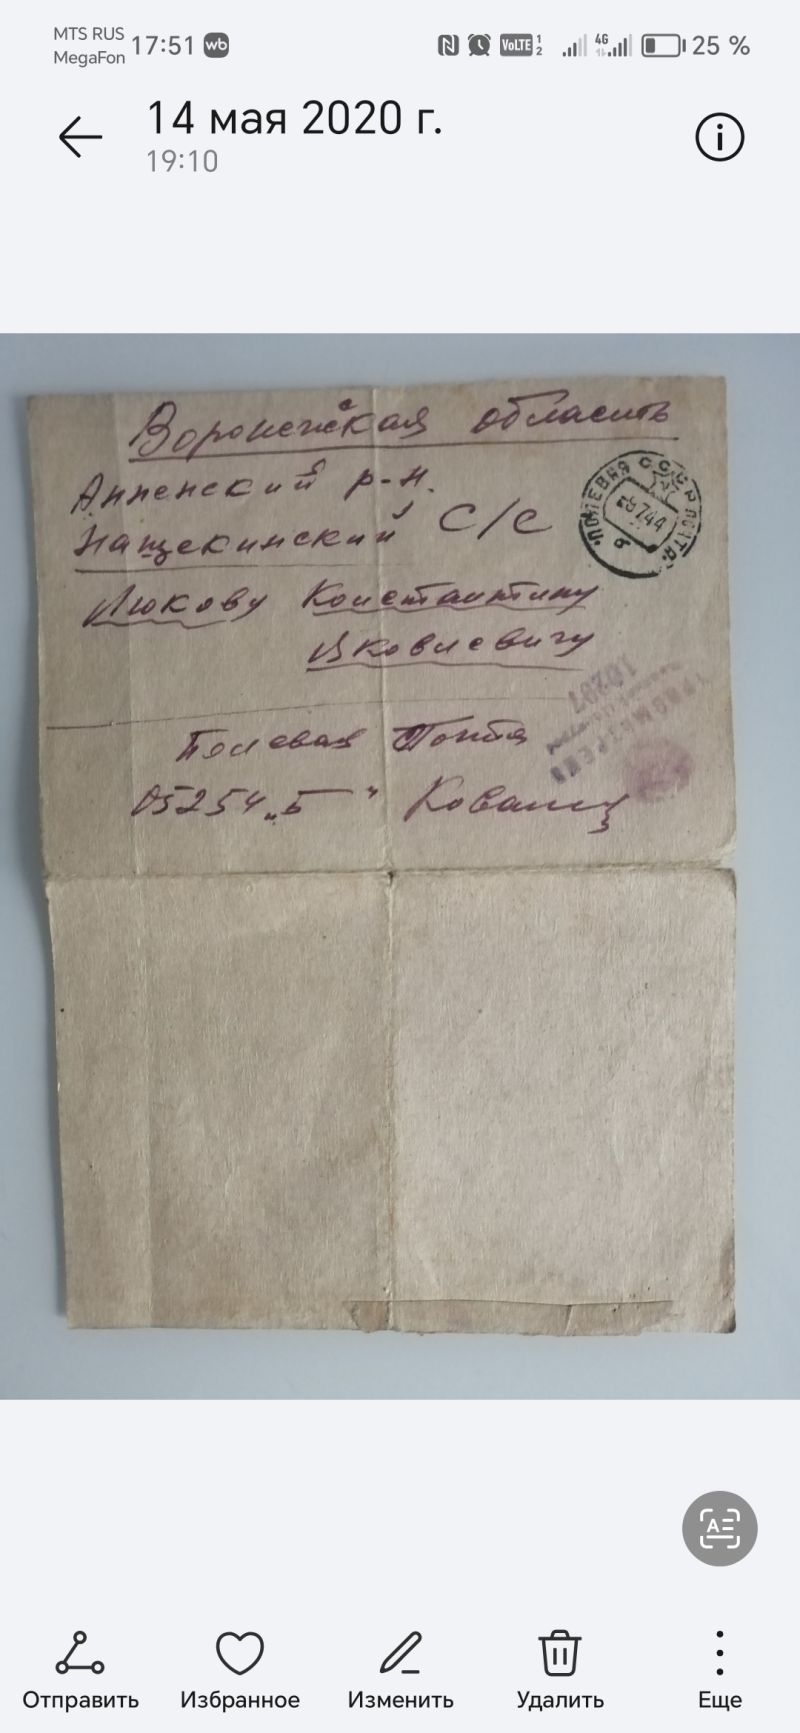 MTS RUS
MegaFon
17:51 wb N VoLTE 1 2 4G 25 %
14 мая 2020 г.
19:10
Воронежская область
Анненский р-н.
Нащекинский С/С
ПОЛЕВАЯ ПОЧТА СССР
7 44
б
Люкову Константину
Яковлевичу
10207
ПРОСМОТРЕНО
Полевая Почта
05254 „Б"
AE
Отправить Избранное Изменить Удалить Еще